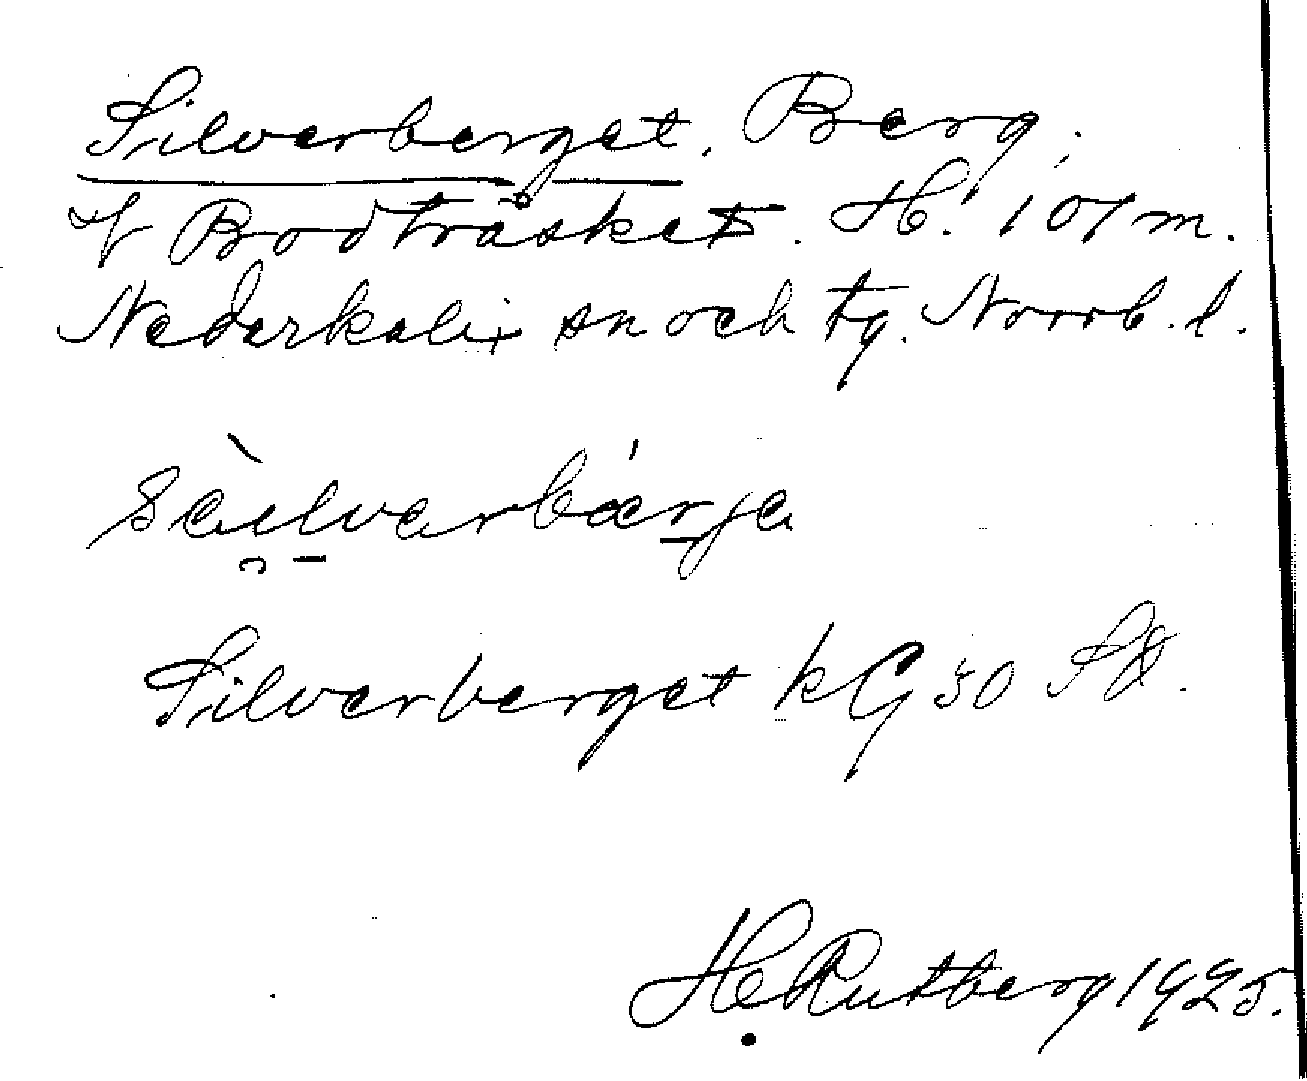 Silverberget. Berg,
V Bodträsket. H. 101 m.
Nederkalix sn och tg. Norrb. l.
sàilvarbárja
Silverberget kG 30
H Rutberg 1925.